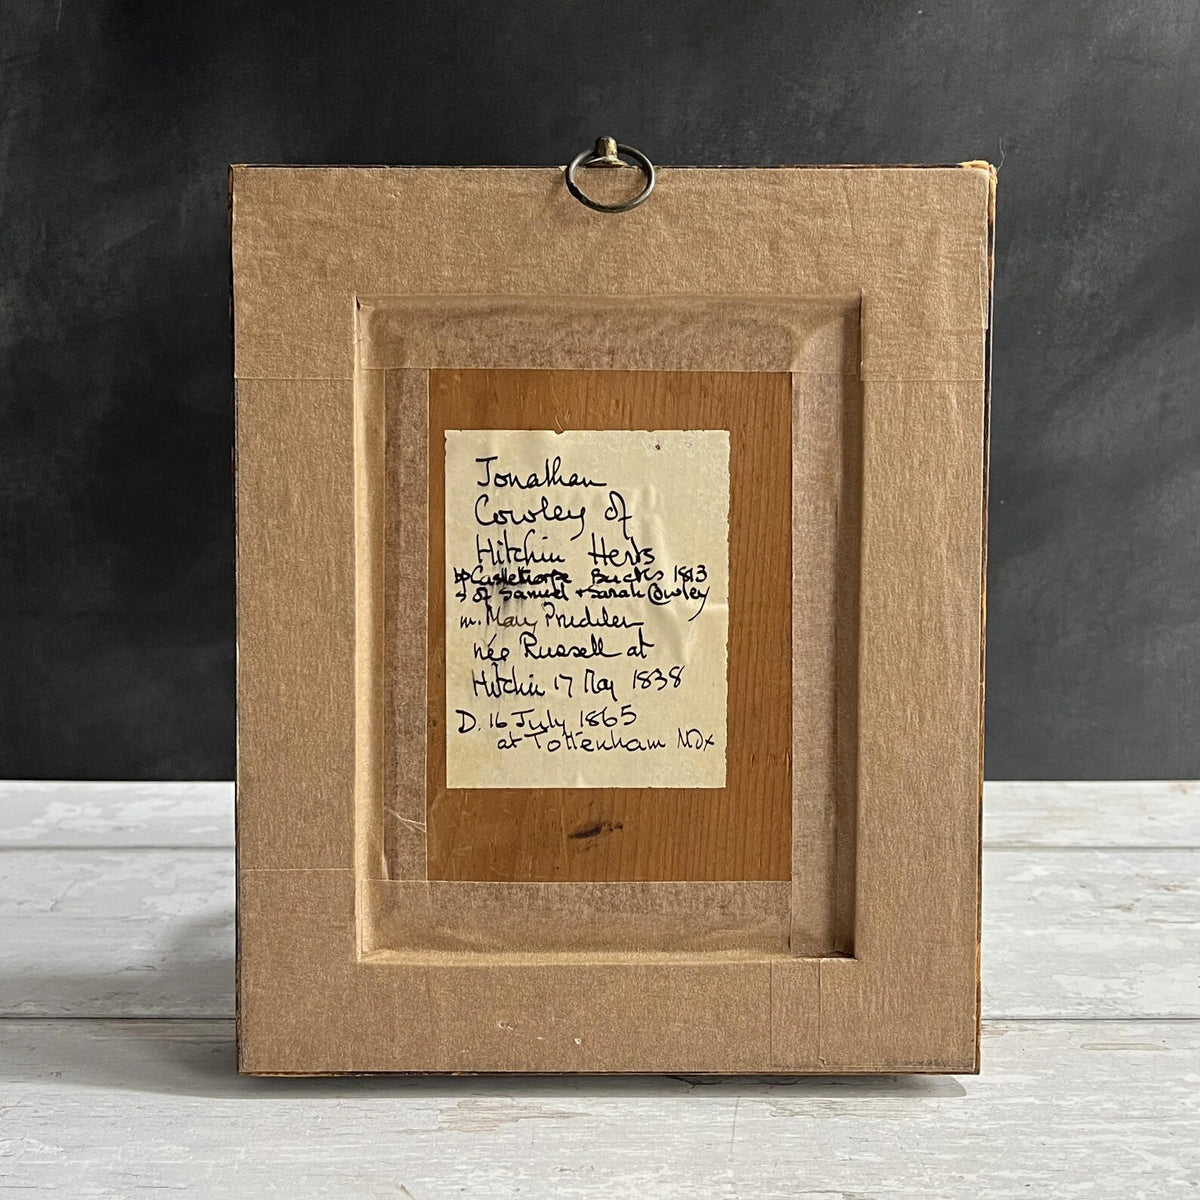 Jonathan
Cowley of
Hitchin Herts
bp Castlethorpe Bucks 1813
s of Samuel + Sarah Cowley
m. Mary
née Russell at
Hitchin 17 May 1838
D. 16 July 1865
at Tottenham Mdx